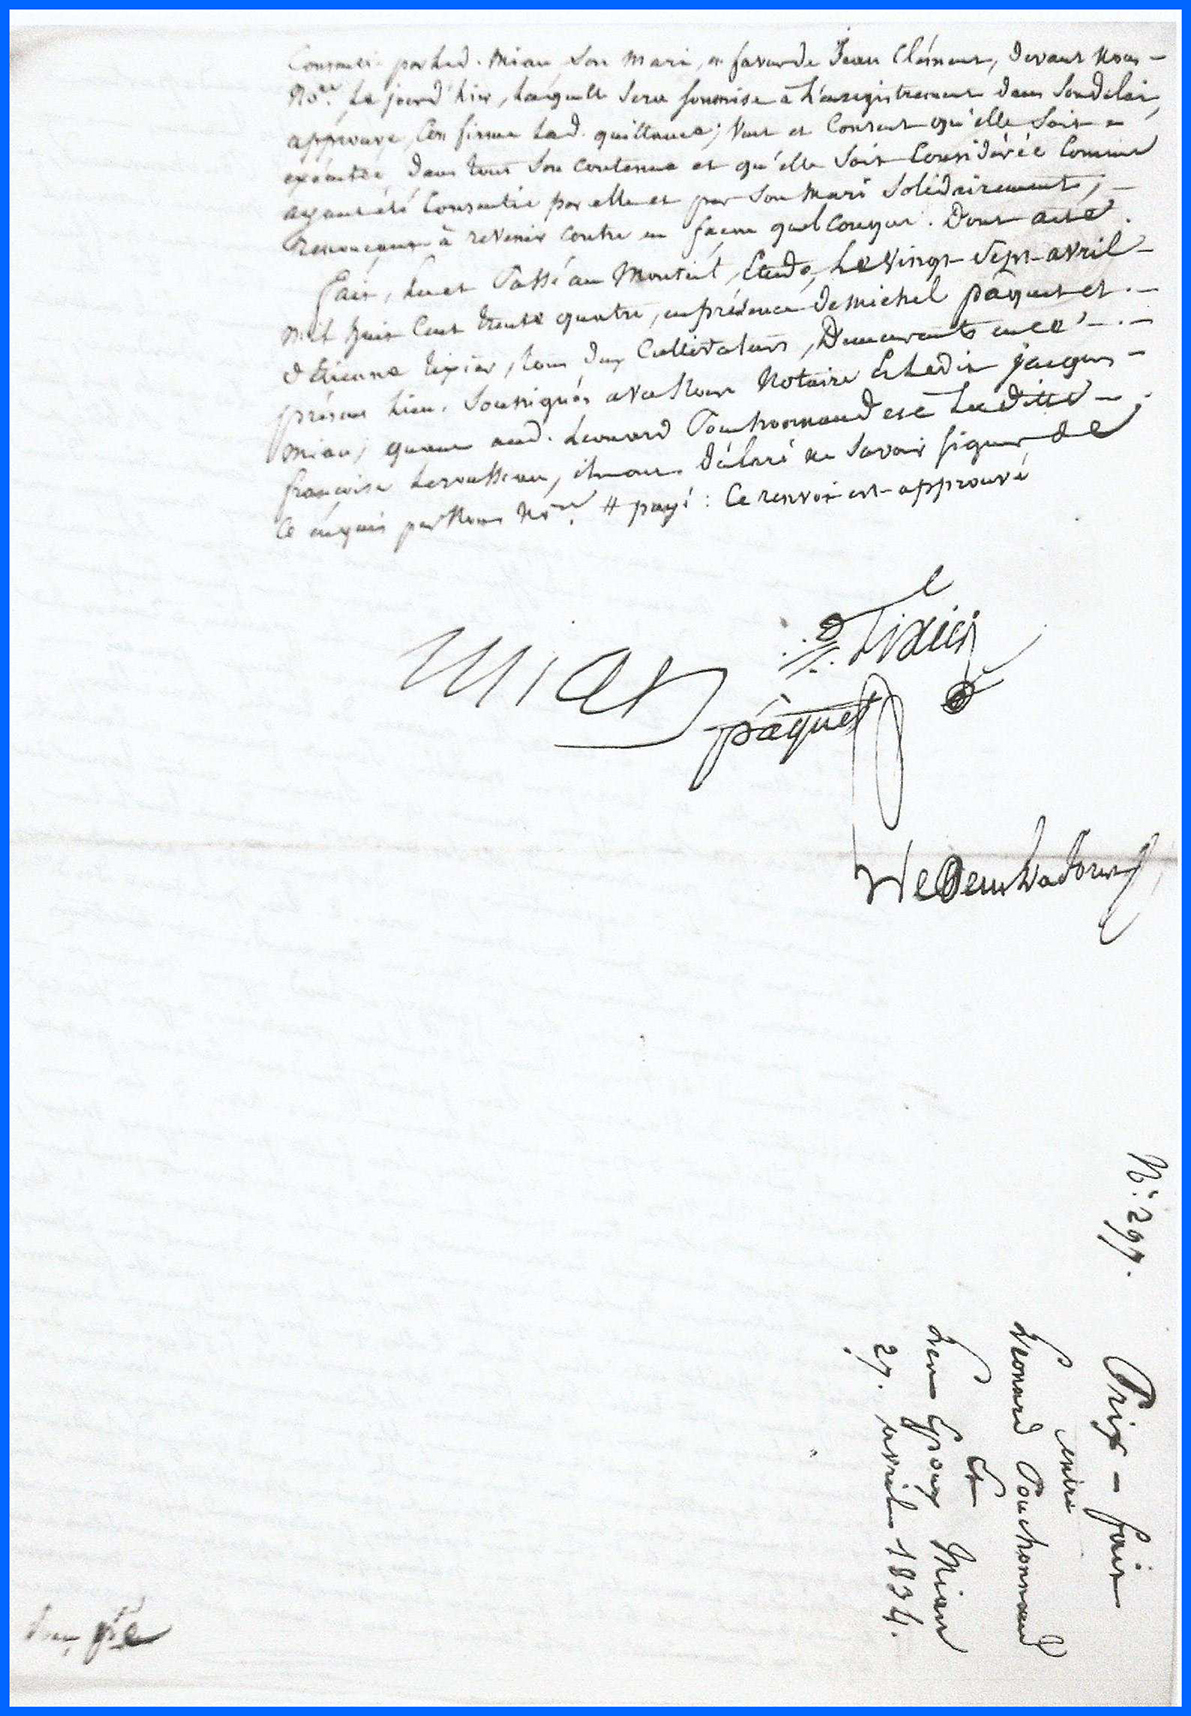 Consentie par led. Mian son mari, en faveur de Jean Clément, devant nous
Nore. Le jourd'hier, laquelle sera soumise à l'enregistrement dans son délai,
approuve, confirme lad. quittance; veut et consent qu'elle soit
exécutée dans tout son contenu et qu'elle soit considérée comme
ayant été consentie par elle et par son mari solidairement,
renonçant à revenir contre en façon quelconque. Dont acte.
fait, lu et passé au Monteil, Etude, le vingt sept avril
mil huit cent trente quatre, en présence de michel paquet et
d'Etienne Tixier, tous deux cultivateurs, Demeurants en ce
présent lieu. Soussignés avec Nous Notaire et ledit jacques
Mian; quant aud. Leonard Pouchonnaud et à Laditte
françoise Lerousseau, ils ont déclaré ne savoir signer de
ce enquis par Nous Nore. # payé : Ce renvoi est approuvé
Mian
Tixier
paquet
N° 297.
Prix-fait
entre
Leonard Pouchonnaud
Et
Les Epoux Mian
27. avril 1834.